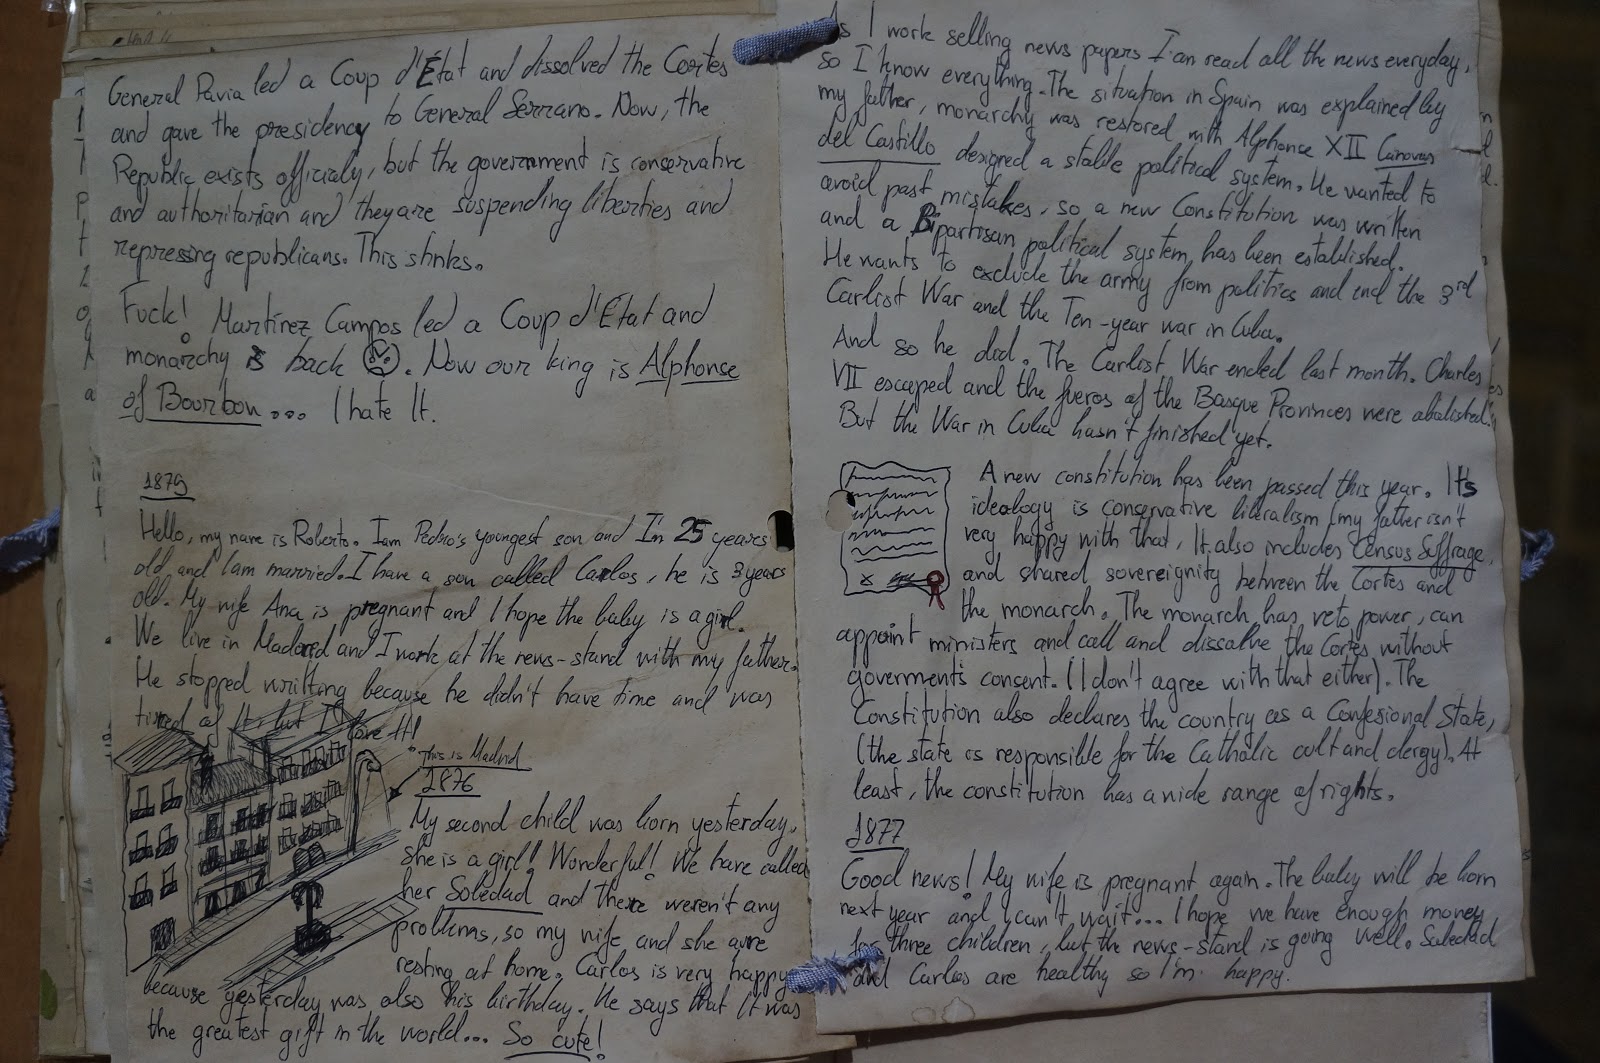 General Pavia led a Coup d'État and dissolved the Cortes
and gave the presidency to General Serrano. Now, the
Republic exists officialy, but the government is conservative
and authoritarian and they are suspending liberties and
repressing republicans. This stinks.
Fuck! Martínez Campos led a Coup d'État and
monarchy is back. Now our king is Alphonse
of Bourbon... I hate It.
1875
Hello, my name is Roberto. I am Pedro's youngest son and I'm 25 years
old, and I am married. I have a son called Carlos, he is 3 years
old. My wife Ana is pregnant and I hope the baby is a girl.
We live in Madrid and I work at the news-stand with my father.
He stopped writting because he didn't have time and was
tired of It but I love It!
This is Madrid
1876
My second child was born yesterday.
She is a girl! Wonderful! We have called
her Soledad and there weren't any
problems, so my wife and she are
resting at home. Carlos is very happy
because yesterday was also his birthday. He says that It was
the greatest gift in the world... So cute!
As I work selling news papers I can read all the news everyday,
so I know everything. The situation in Spain was explained by
my father, monarchy was restored with Alphonse XII Cánovas
del Castillo designed a stable political system. He wanted to
avoid past mistakes, so a new Constitution was written
and a Bipartisan political system has been established.
He wants to exclude the army from politics and end the 3rd
Carlist War and the Ten-year war in Cuba.
And so he did. The Carlist War ended last month. Charles
VII escaped and the fueros of the Basque Provinces were abolished.
But the War in Cuba hasn't finished yet.
A new constitution has been passed this year. It's
idealogy is conservative liberalism (my father isn't
very happy with that). It also includes Census Suffrage
and shared sovereignity between the Cortes and
the monarch. The monarch has veto power, can
appoint ministers and call and dissolve the Cortes without
goverment's consent. (I don't agree with that either). The
Constitution also declares the country as a Confesional State,
(the state is responsible for the Catholic cult and clergy). At
least, the constitution has a wide range of rights.
1877
Good news! My wife is pregnant again. The baby will be born
next year and I can't wait... I hope we have enough money
for three children, but the news-stand is going well. Soledad
and Carlos are healthy so I'm happy.